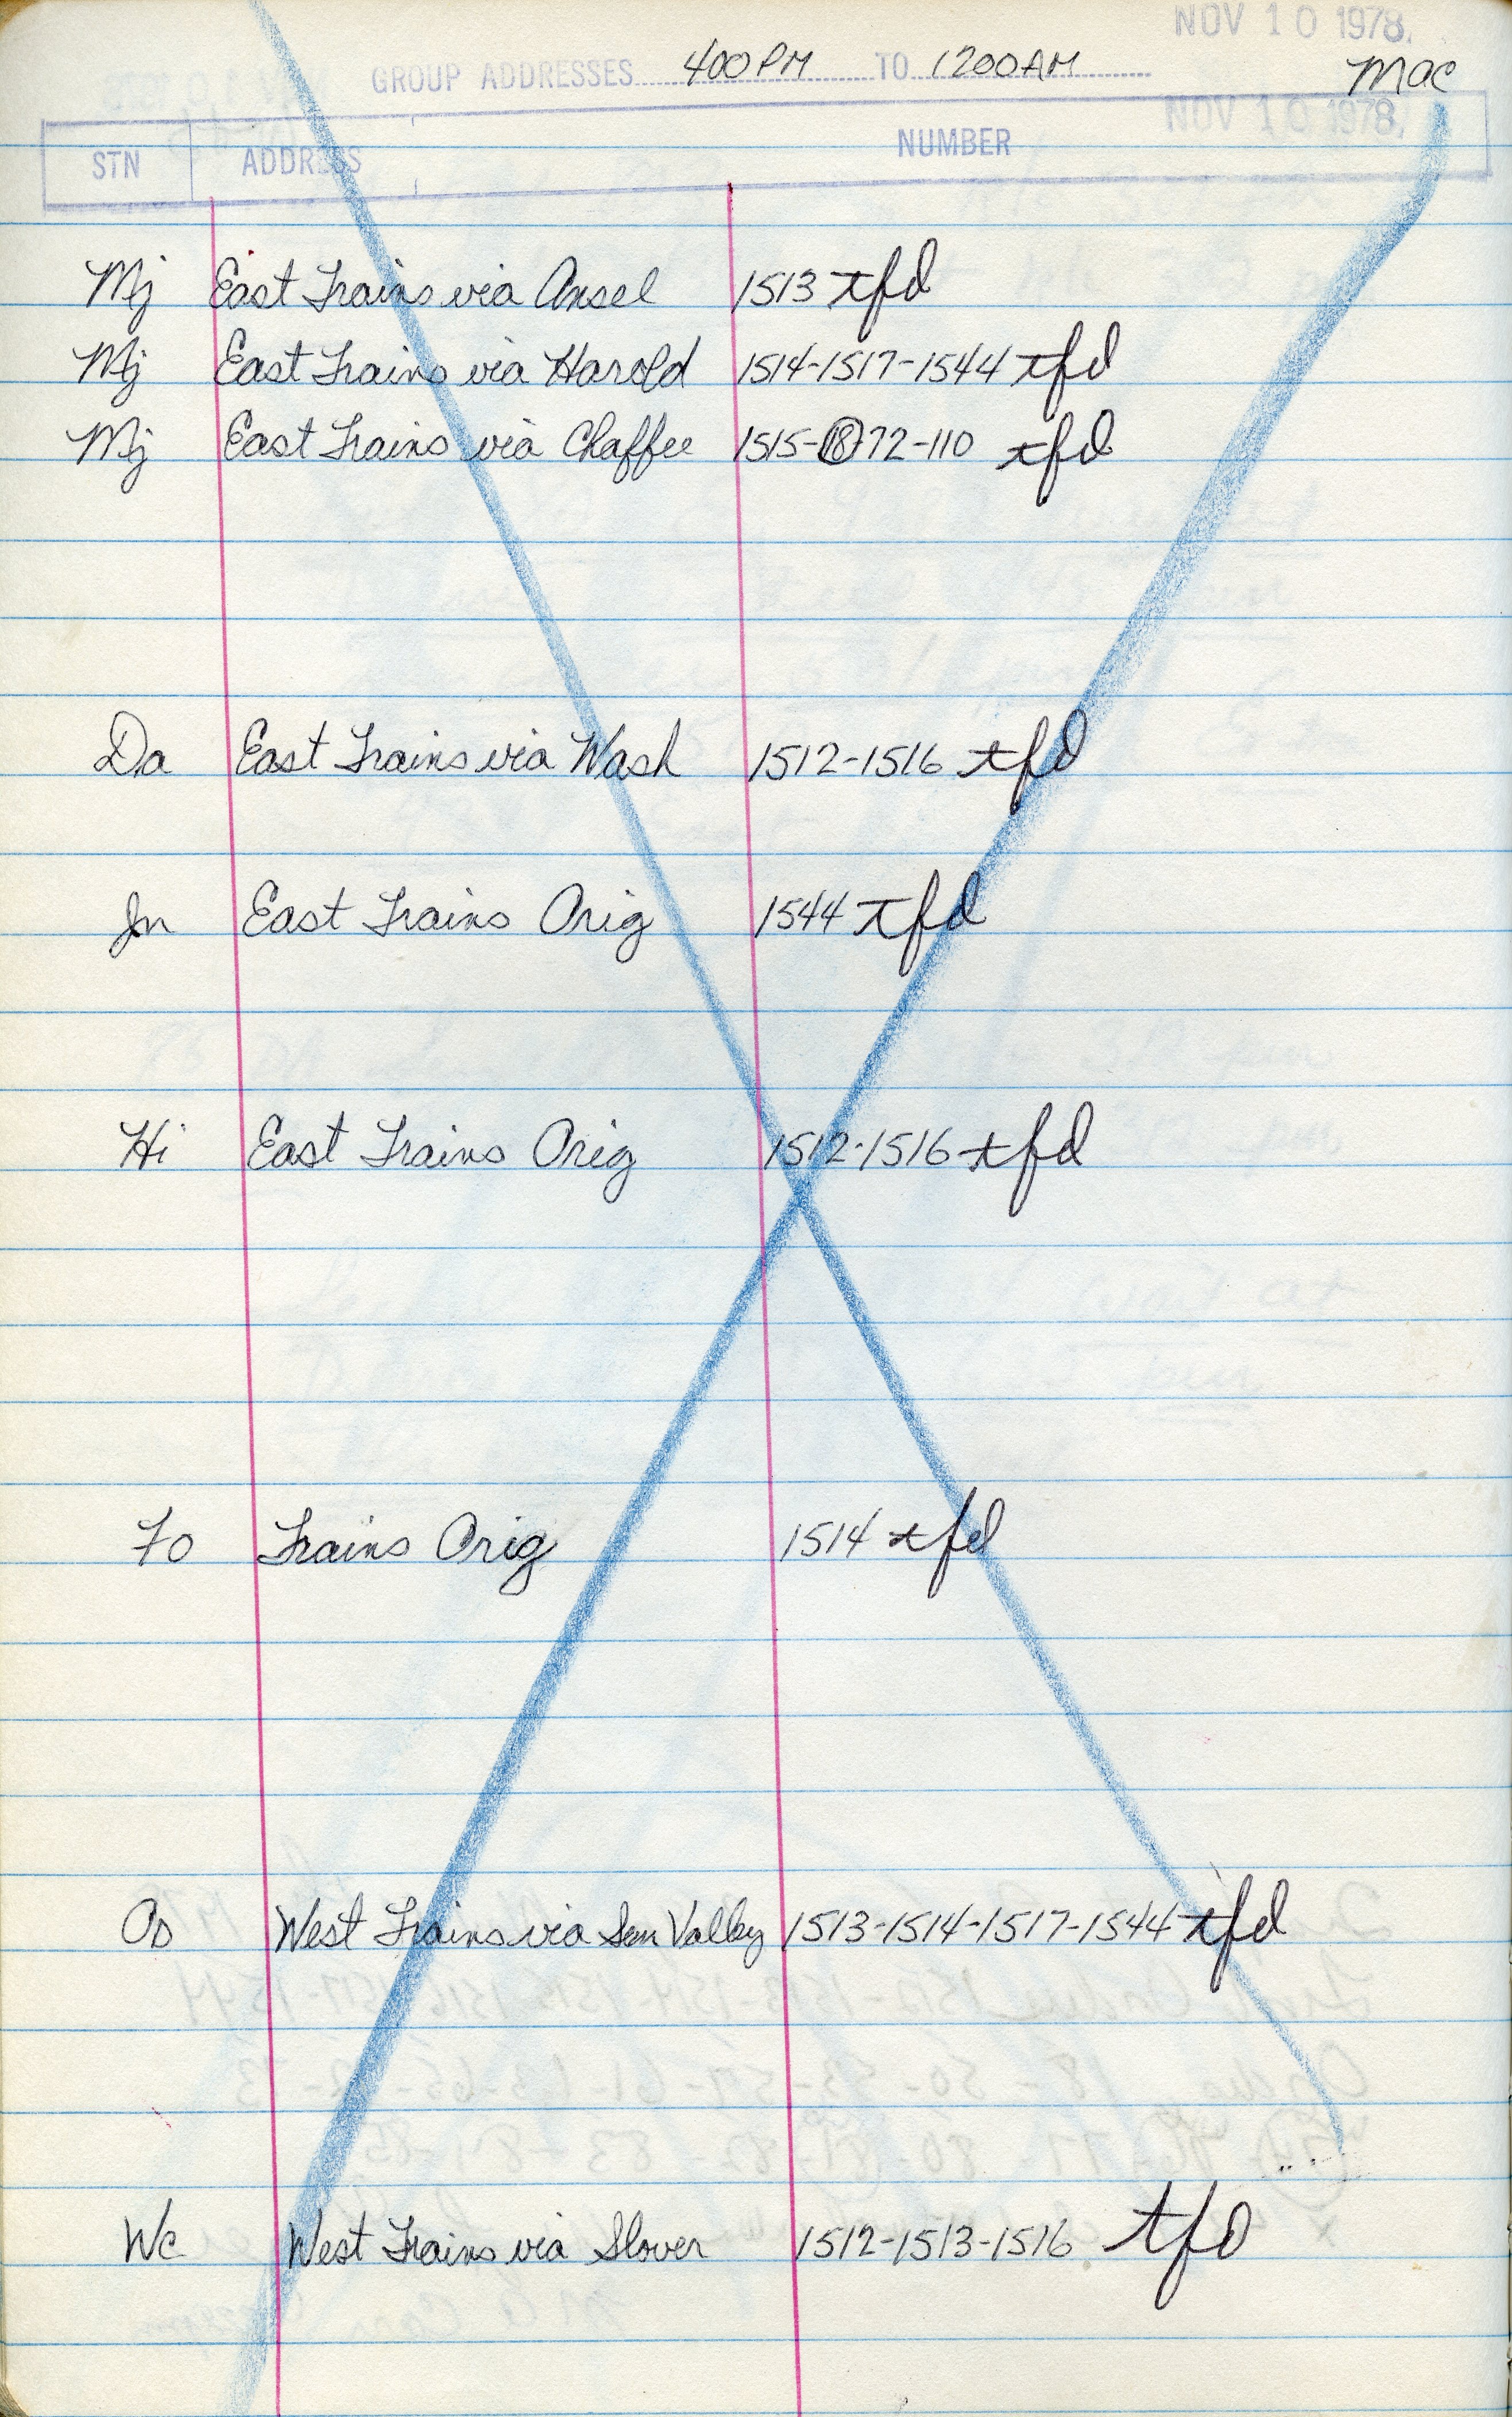 NOV 10 1978.
GROUP ADDRESSES 400PM TO 1200AM Mac
NOV 10 1978.
STN ADDRESS NUMBER
Mj East Trains via Ansel 1513 tfd
Mj East Trains via Harold 1514-1517-1544 tfd
Mj East Trains via Chaffee 1515-(18)72-110 tfd
Da East Trains via Wash 1512-1516 tfd
Jn East Trains Orig 1544 tfd
Hi East Trains Orig 1512-1516 tfd
Fo Trains Orig 1514 tfd
Os West Trains via Sun Valley 1513-1514-1517-1544 tfd
Wc West Trains via Slover 1512-1513-1516 tfd